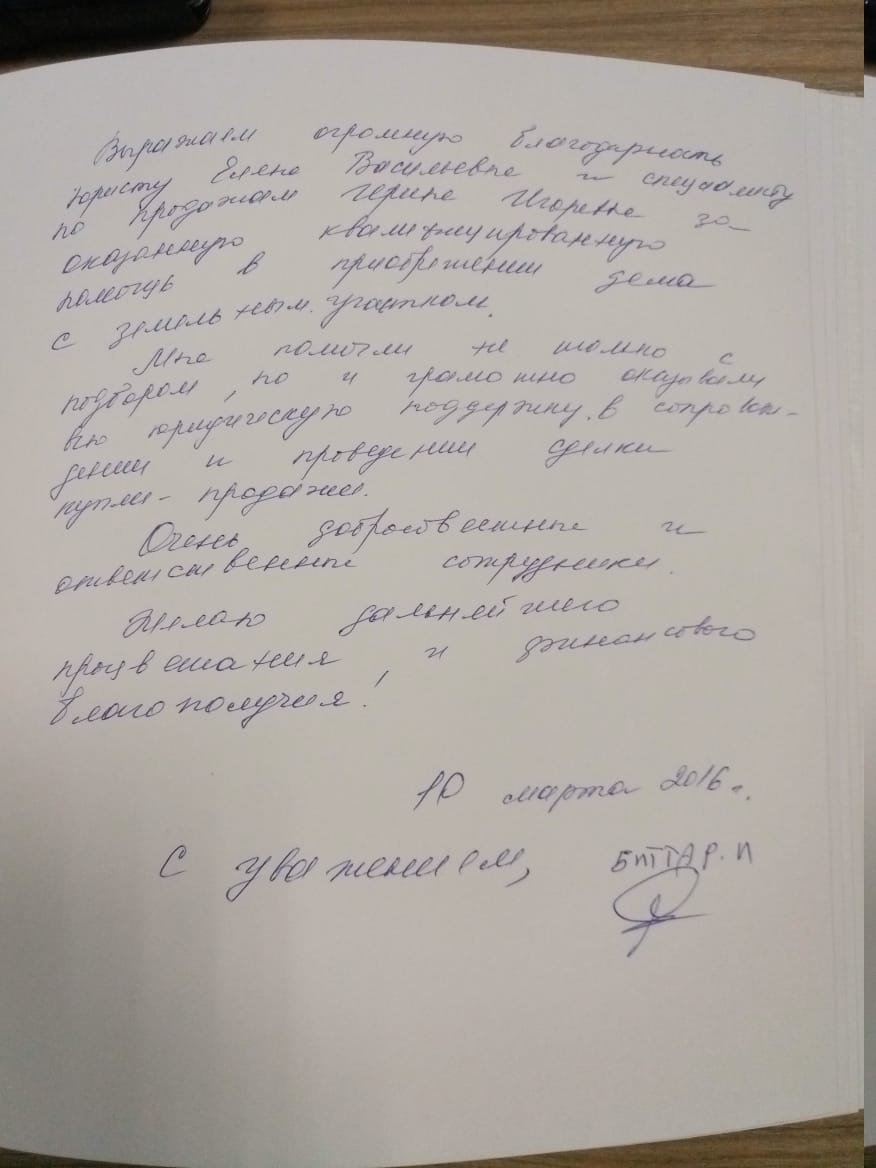 Выражаем огромную благодарность
юристу Елене Васильевне и специалисту
по продажам Ирине Игоревне за
оказанную квалифицированную
помощь в приобретении дома
с земельным участком.
Мне помогли не только с
подбором, но и грамотно оказывали
всю юридическую поддержку в сопровож-
дении и проведении сделки
купли-продажи.
Очень добросовестные и
ответственные сотрудники.
Желаю дальнейшего
процветания и финансового
благополучия!
10 марта 2016 г.
С уважением, БИТТАР. И